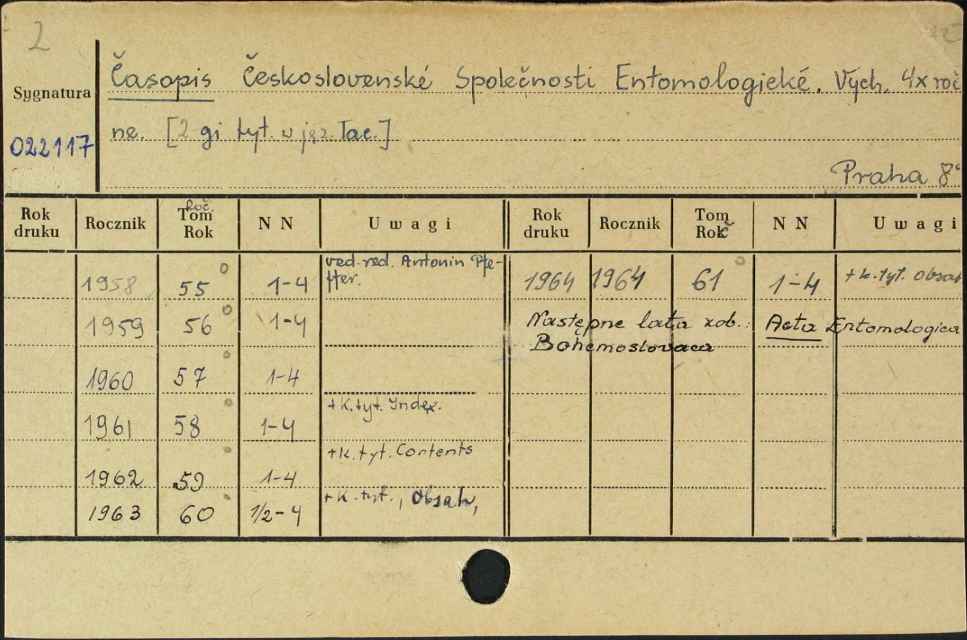 2
Sygnatura
022117
Časopis Československé Společnosti Entomologické. Vych. 4x roč
ne. [2 gi tyt. w jęz. łac.]
Praha 8°
Rok druku Rocznik Roč. Tom Rok NN Uwagi Rok druku Rocznik Tom Roč NN Uwagi
1958 55 1-4 ved. red. Antonin Pfe-
ffer. 1964 1964 61 1-4 + k. tyt. Obsah
1959 56 1-4 Następne lata zob.: Acta Entomologica
Bohemoslovaca
1960 57 1-4
1961 58 1-4 + k. tyt. Index.
1962 59 1-4 + k. tyt. Contents
1963 60 1/2-4 + k. tyt., Obsah,